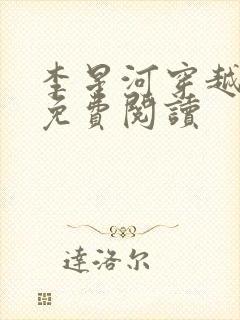 李星河穿越
免費閱讀
達洛尔